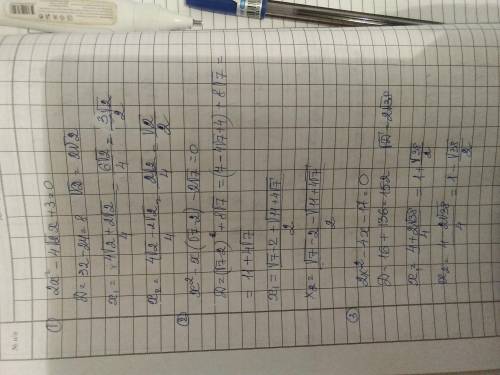 ① 2x² - 4√2x + 3 = 0
D = 32 - 24 = 8   √D = 2√2
x₁ = (4√2 + 2√2)/4 = 6√2/4 = 3√2/2
x₂ = (4√2 - 2√2)/4 = 2√2/4 = √2/2
② x² - x(√7-2) - 2√7 = 0
D = (√7-2)² + 8√7 = (7 - 4√7 + 4) + 8√7 =
= 11 + 4√7
x₁ = (√7 - 2 + √11+4√7)/2
x₂ = (√7 - 2 - √11+4√7)/2
③ 2x² - 4x - 17 = 0
D = 16 + 136 = 152   √D = 2√38
x₁ = (4 + 2√38)/4 = 1 + √38/2
x₂ = (4 - 2√38)/4 = 1 - √38/2